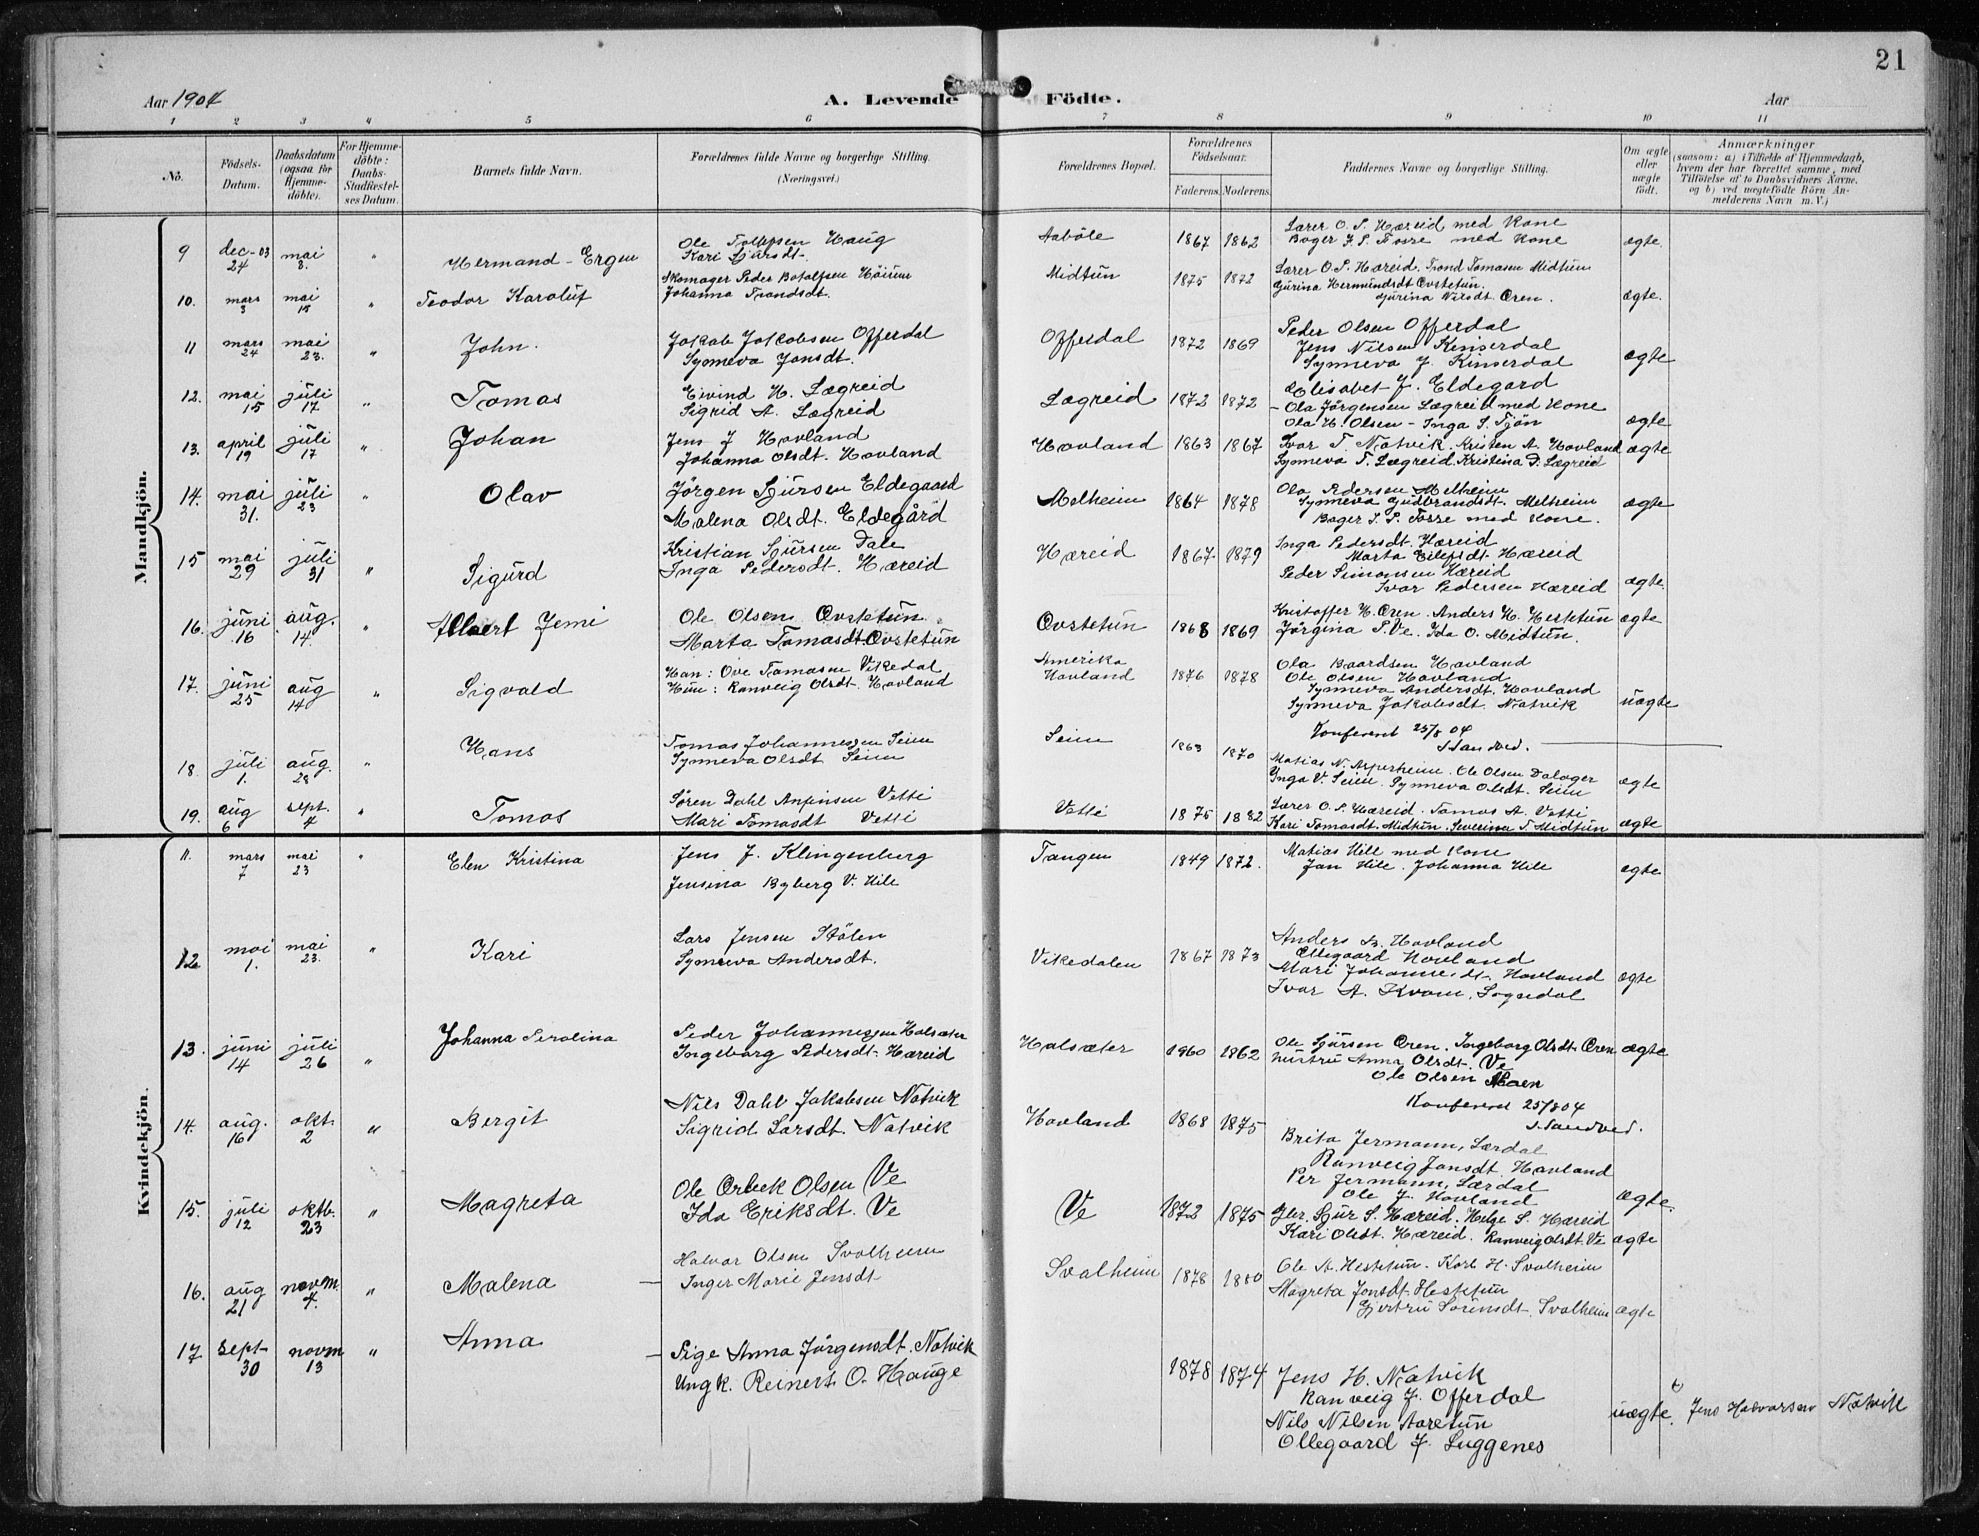 21
Aar 1904
A. Levende Födte.
Aar
1 2 3 4 5 6 7 8 9 10 11
No.
Födsels-Datum.
Daabsdatum (ogsaa for Hjemmedöbte).
For Hjemmedöbte: Daabs-Stadfæstelses Datum.
Barnets fulde Navn.
Forældrenes fulde Navne og borgerlige Stilling. (Næringsvei.)
Forældrenes Bopæl.
Forældrenes Födselsaar.
Faderens. Moderens.
Faddernes Navne og borgerlige Stilling.
Om ægte eller uægte födt.
Anmærkninger
(saasom: a) i Tilfælde af Hjemmedaab,
hvem der har forrettet samme, med
Tilföielse af to Daabsvidners Navne,
og b) ved uægtefödte Börn Anmelderens Navn m. V.)
Mandkjön.
9 dec-03 24 mai 8. " Hermand - Ergen
Ole Tollefsen Haug
Kari Sjursdt.
Aaböle 1867 1862
Lærer O. P. Hæreid med Kone
Bager J. P. Fosse med Kone
ægte
10. mars 3 mai 15 " Teodor Karoluf
Skomager Peder Botolfsen Höium
Johanna Trondsdt.
Midtun 1875 1872
Lærer O. P. Hæreid. Trond Tomasen Midtun
Gjurina Hermundsdt Ovstetun.
Gjurina Nilsdt. Oren.
ægte.
11 mars 24 mai 23. " John.
Jakob Jakobsen Offerdal
Synneva Jonsdt.
Offerdal 1872 1869
Peder Olsen Offerdal
Jens Nilsen Kinserdal
Synneva J. Kinserdal
ægte
12. mai 15 juli 17 " Tomas
Eivind H. Lægreid
Sigrid A. Lægreid
Lægreid 1872 1872
Elisabet J. Eldegard
- Ola Jörgensen Lægreid med Kone
Ola H. Olsen - Inga S. Tjön
ægte
13. april 19 juli 17 " Johan
Jens J Hovland
Johanna Olsdt. Hovland
Hovland 1863 1867
Ivar T. Natvik. Kristen A. Hovland
Synneva T. Lægreid. Kristina D. Lægreid
ægte
14. mai 31. juli 23 " Olav
Jörgen Sjursen Eldegaard
Malena Olsdt. Eldegård
Melheim 1864 1878
Ola Pedersen Melheim
Synneva Gudbrandsdt. Melheim
Bager J. P. Fosse med Kone.
ægte
15 mai 29 juli 31 " Sigurd
Kristian Sjursen Dale
Inga Pedersdt. Hæreid
Hæreid 1867 1879
Inga Pedersdt. Hæreid
Marta Eilefsdt. Hæreid
Peder Simonsen Hæreid
Ivar Pedersen Hæreid
ægte
16. juni 16 aug. 14. " Albert Jemi
Ole Olsen Ovstetun
Marta Tomasdt. Ovstetun
Ovstetun 1868 1869
Kristoffer H. Oren. Anders H. Hestetun
Jörgina P. Ve. Ida O. Midtun.
ægte
17. juni 25 aug 14 " Sigvald
Han: Ove Tomasen Vikedal
Hun: Ranveig Olsdt. Hovland
Amerika
Hovland 1876 1878
Ola Baardsen Hovland
Ole Olsen Hovland
Synneva Andersdt. Hovland
Synneva Jakobsdt. Natvik
uægte
Konferent 25/8 04
S. Sandved.
18. juli 1. aug. 28 " Hans
Tomas Johannessen Seim
Synneva Olsdt Seim
Seim 1863 1870
Matias N. Asperheim. Ole Olsen Dalager
Inga V. Seim. Synneva Olsdt. Seim
ægte
19. aug 6 sept. 4 " Tomas
Sören Dahl Anfinsen Vetti
Mari Tomasdt Vetti
Vetti 1875 1882
Lærer O. P. Hæreid. Tomas A. Vetti
Kari Tomasdt. Midtun. Severina T. Midtun
ægte
Kvindekjön.
11. mars 7 mai 23 " Elen Kristina
Jens J. Klingenberg
Jensina Byberg V. Hile
Tangen 1849 1872.
Matias Hile med Kone
Jan Hile. Johanna Hile
ægte
12 mai 1. mai 23. " Kari
Lars Jensen Stölen
Synneva Andersdt.
Vikedalen 1867 1873
Anders B. Hovland
Ollegaard Hovland
Mari Johannesdt. Hovland
Ivar A. Kvam, Sogndal
ægte
13. juni 14 juli 26 " Johanna Perolina
Peder Johannessen Halsæter
Ingeborg Pedersdt. Hæreid
Halsæter 1860 1862
Ole Sjursen Oren. Ingeborg Olsdt. Oren
Hustru Anna Olsdt. Ve
Ole Olsen Moen
ægte
Konferent 25/8 04
S. Sandved.
14. aug. 16 okt. 2 " Bergit
Nils Dahl Jakobsen Natvik
Sigrid Larsdt. Natvik
Hovland 1868 1875
Brita Jermann, Lærdal
Ranveig Jonsdt. Hovland
Per Jermann, Lærdal
Ole J. Hovland
ægte.
15. juli 12 oktb. 23 " Magreta
Ole Orbek Olsen Ve
Ida Eriksdt. Ve
Ve 1872 1875
Gbr. Sjur S. Hæreid. Helge S. Hæreid
Kari Olsdt. Hæreid. Ranveig Olsdt. Ve
ægte
16. aug 21 novm. 4. " Malena
Halvor Olsen Svalheim
Inger Marie Jensdt
Svalheim 1878 1880
Ole A. Hestetun. Karl H. Svalheim
Magreta Jonsdt. Hestetun
Gjertru Sörensdt. Svalheim
ægte
17 sept 30 novm 13 " Anna
Pige Anna Jörgensdt. Natvik
Ungk. Reinert O. Hauge
1878 1874
Jens H. Natvik
Ranveig J. Offerdal
Nils Nilsen Aaretun
Ollegaard J. Luggenes
uægte. Jens Halvorsen Natvik